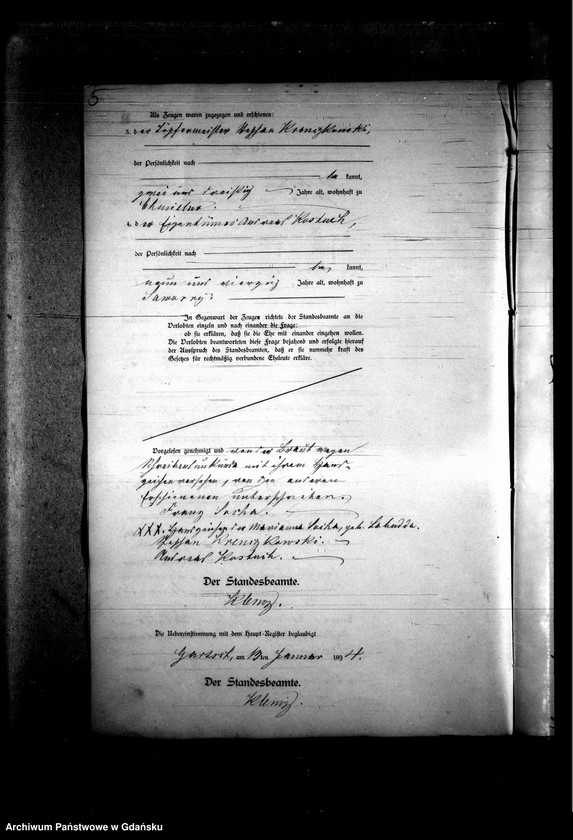 5
Als Zeugen waren zugezogen und erschienen:
3. der Töpfermeister Stephan Krenzkowski,
der Persönlichkeit nach
be kannt,
zwei und dreißig Jahre alt, wohnhaft zu
4. der Eigenthümer Andreas Kostuch,
der Persönlichkeit nach
be kannt,
neun und vierzig Jahre alt, wohnhaft zu
In Gegenwart der Zeugen richtete der Standesbeamte an die
Verlobten einzeln und nach einander die Frage:
ob sie erklären, daß sie die Ehe mit einander eingehen wollen.
Die Verlobten beantworteten diese Frage bejahend und erfolgte hierauf
der Ausspruch des Standesbeamten, daß er sie nunmehr kraft des
Gesetzes für rechtmäßig verbundene Eheleute erkläre.
Vorgelesen, genehmigt und von der Braut wegen
Schreibensunkunde mit ihrem Hand-
zeichen versehen, von den anderen
Erschienenen unterschrieben.
Franz Socha.
XXX. Handzeichen der Marianna Socha, geb. Labudda.
Stephan Krenzkowski.
Andreas Kostuch.
Der Standesbeamte.
Die Uebereinstimmung mit dem Haupt-Register beglaubigt
am 13ten Januar 1894.
Der Standesbeamte.
Archiwum Państwowe w Gdańsku